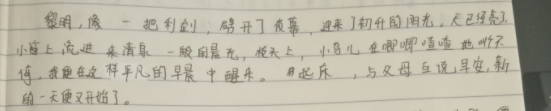 黎明,像一把利剑,劈开了夜幕,迎来了初升的阳光,天已经亮了,
小窗上流进来清泉一般的晨光,枝头上,小鸟儿在唧唧喳喳地叫不
停,我便在这样平凡的早晨中醒来。起床,与父母互说早安,新
的一天便又开始了。